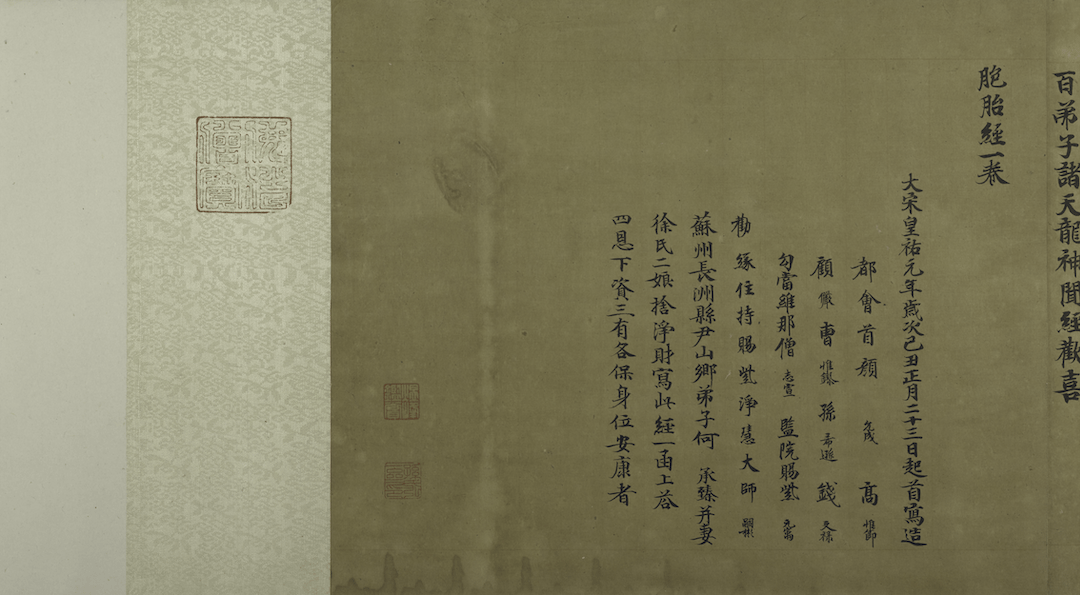 百弟子諸天龍神聞經歡喜
胞胎經一卷
大宋皇祐元年歲次己丑正月二十三日起首寫造
都會首顏 高
顧 曹 孫 錢
勾當維那僧 志宣 監院賜紫
勸緣住持賜紫淨慧大師
蘇州長洲縣尹山鄉弟子何 承臻并妻
徐氏二娘捨淨財寫此經一函上荅
四恩下資三有各保身位安康者